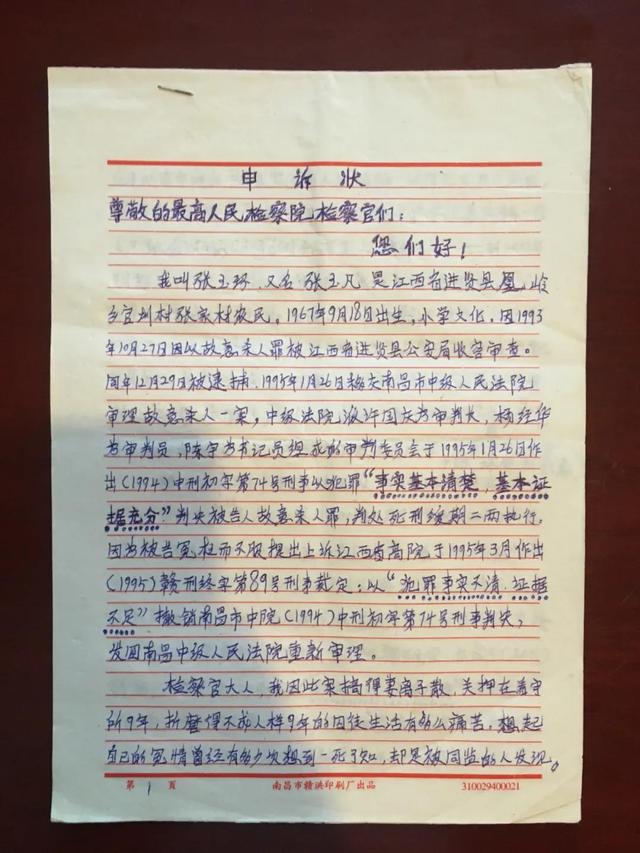 申诉状
尊敬的最高人民检察院检察官们：
您们好！
我叫张玉环，又名张玉凡是江西省进贤县凰岭
乡官圳村张家村农民，1967年9月18日出生，小学文化，因1993
年10月27日因以故意杀人罪被江西省进贤县公安局收容审查。
同年12月29日被逮捕，1995年1月26日移交南昌市中级人民法院
审理故意杀人一案，中级法院 许国庆为审判长，杨经华
为审判员，陈宇为书记员组成的审判委员会于1995年1月26日作
出(1994)中刑初字第74号刑事以犯罪“事实基本清楚，基本证
据充分”判决被告人故意杀人罪，判处死刑缓期二两执行，
因为被告冤枉而不服提出上诉江西省高院于1995年3月作出
(1995)赣刑终字第89号刑事裁定；以“犯罪事实不清，证据
不足”撤销南昌市中院(1994)中刑初字第74号刑事判决，
发回南昌中级人民法院重新审理。
检察官大人，我因此案搞得妻离子散，关押在看守
所9年，折磨得不成人样9年的囚徒生活有多么痛苦，想起
自己的冤情曾经有多少次想到一死了知，却是被同监的人发现。
第 1 页 南昌市赣洪印刷厂出品 310029400021